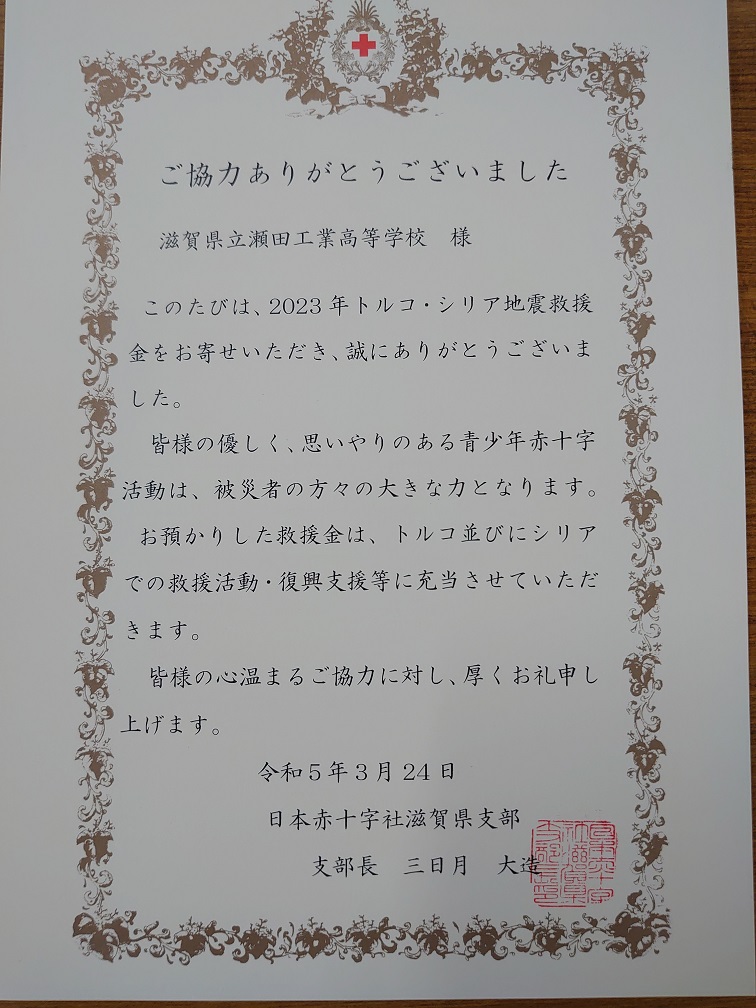 ご協力ありがとうございました
滋賀県立瀬田工業高等学校　様
このたびは、2023年トルコ・シリア地震救援
金をお寄せいただき、誠にありがとうございま
した。
皆様の優しく、思いやりのある青少年赤十字
活動は、被災者の方々の大きな力となります。
お預かりした救援金は、トルコ並びにシリア
での救援活動・復興支援等に充当させていただ
きます。
皆様の心温まるご協力に対し、厚くお礼申し
上げます。
令和5年3月24日
日本赤十字社滋賀県支部
支部長　三日月　大造